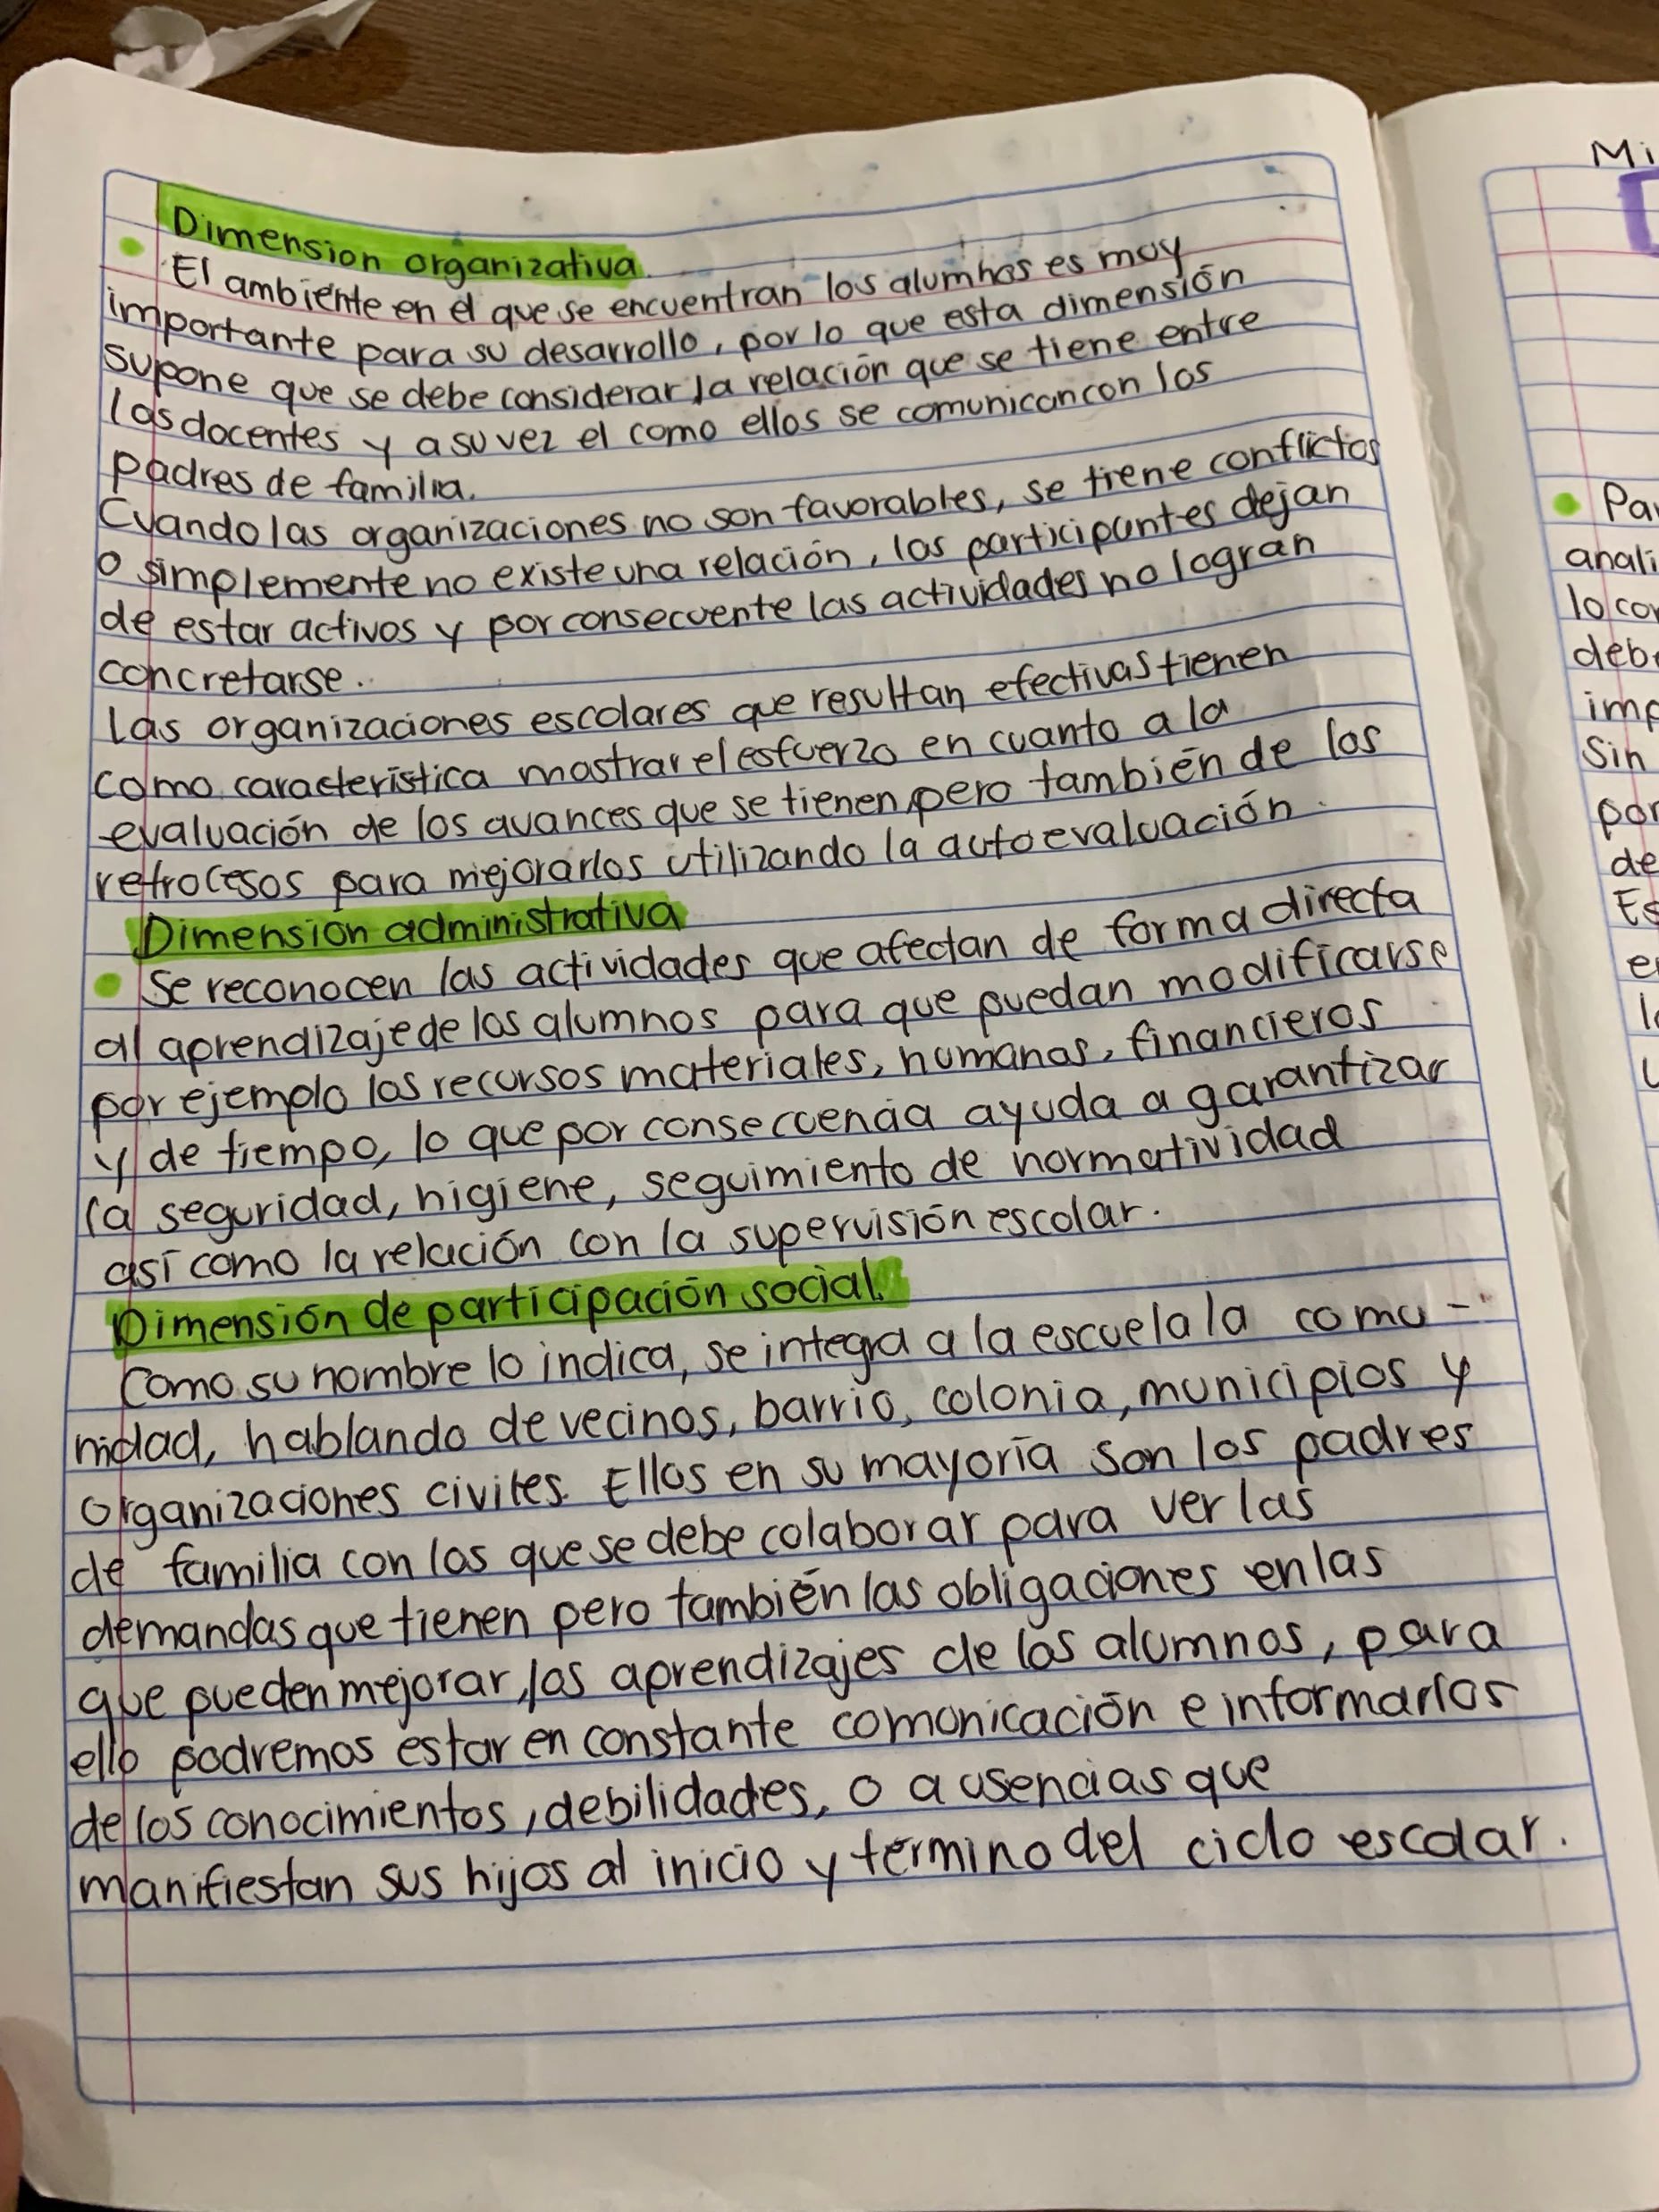 Dimension organizativa.
• El ambiente en el que se encuentran los alumnos es muy
importante para su desarrollo, por lo que esta dimensión
supone que se debe considerar la relación que se tiene entre
los docentes y a su vez el como ellos se comunican con los
padres de familia.
Cuando las organizaciones no son favorables, se tiene conflictos
o simplemente no existe una relación, los participantes dejan
de estar activos y por consecuente las actividades no logran
concretarse.
Las organizaciones escolares que resultan efectivas tienen
como característica mostrar el esfuerzo en cuanto a la
evaluación de los avances que se tienen, pero también de los
retrocesos para mejorarlos utilizando la autoevaluación.
Dimensión administrativa
• Se reconocen las actividades que afectan de forma directa
al aprendizaje de los alumnos para que puedan modificarse
por ejemplo los recursos materiales, humanos, financieros
y de tiempo, lo que por consecuencia ayuda a garantizar
la seguridad, higiene, seguimiento de normatividad
así como la relación con la supervisión escolar.
Dimensión de participación social.
Como su nombre lo indica, se integra a la escuela la comu-
nidad, hablando de vecinos, barrio, colonia, municipios y
organizaciones civiles. Ellos en su mayoría son los padres
de familia con los que se debe colaborar para ver las
demandas que tienen pero también las obligaciones en las
que pueden mejorar, los aprendizajes de los alumnos, para
ello podremos estar en constante comunicación e informarlos
de los conocimientos, debilidades, o ausencias que
manifiestan sus hijos al inicio y término del ciclo escolar.
Mi
• Par
anali
lo co
debe
imp
Sin
por
de
Es